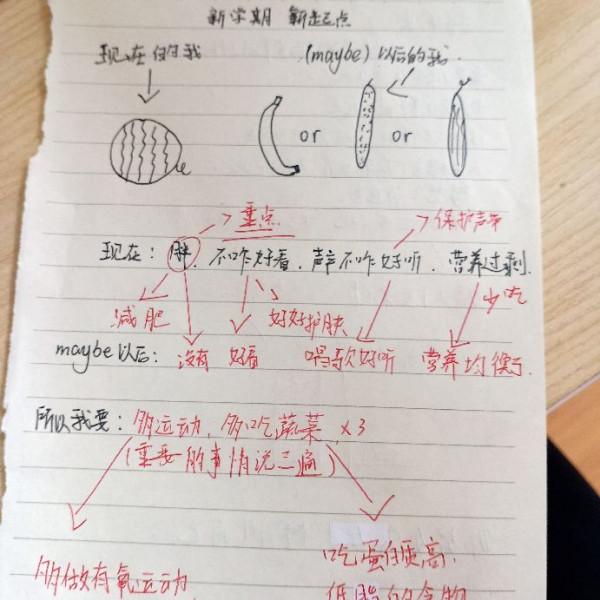 新学期 新起点
现在的我 (maybe)以后的我.
or or
重点 保护声带
现在: 胖. 不咋好看. 声音不咋好听. 营养过剩.
减肥 好好护肤 少吃
maybe以后: 没有 好看 唱歌好听 营养均衡.
所以我要: 多运动, 多吃蔬菜, ×3
(重要的事情说三遍)
吃蛋白质高,
多做有氧运动 低脂的食物